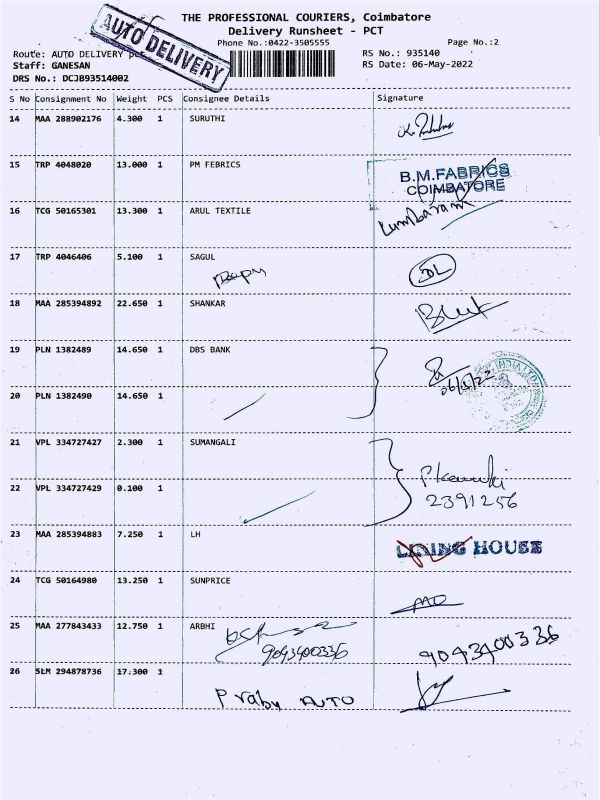 THE PROFESSIONAL COURIERS, Coimbatore
Delivery Runsheet - PCT
AUTO DELIVERY
Phone No.:0422-3505555 Page No.:2
Route: AUTO DELIVERY RS No.: 935140
Staff: GANESAN RS Date: 06-May-2022
DRS No.: DCJB93514002
S No Consignment No Weight PCS Consignee Details Signature
14 MAA 288902176 4.300 1 SURUTHI
15 TRP 4048020 13.000 1 PM FEBRICS
B.M.FABRICS
COIMBATORE
16 TCG 50165301 13.300 1 ARUL TEXTILE
17 TRP 4046406 5.100 1 SAGUL
DL
18 MAA 285394892 22.650 1 SHANKAR
19 PLN 1382489 14.650 1 DBS BANK
20 PLN 1382490 14.650 1
21 VPL 334727427 2.300 1 SUMANGALI
22 VPL 334727429 0.100 1
2391256
23 MAA 285394883 7.250 1 LH
LINING HOUSE
24 TCG 50164980 13.250 1 SUNPRICE
25 MAA 277843433 12.750 1 ARBHI
9043400336 9043400336
26 SLM 294878736 17.300 1
Prabu AUTO